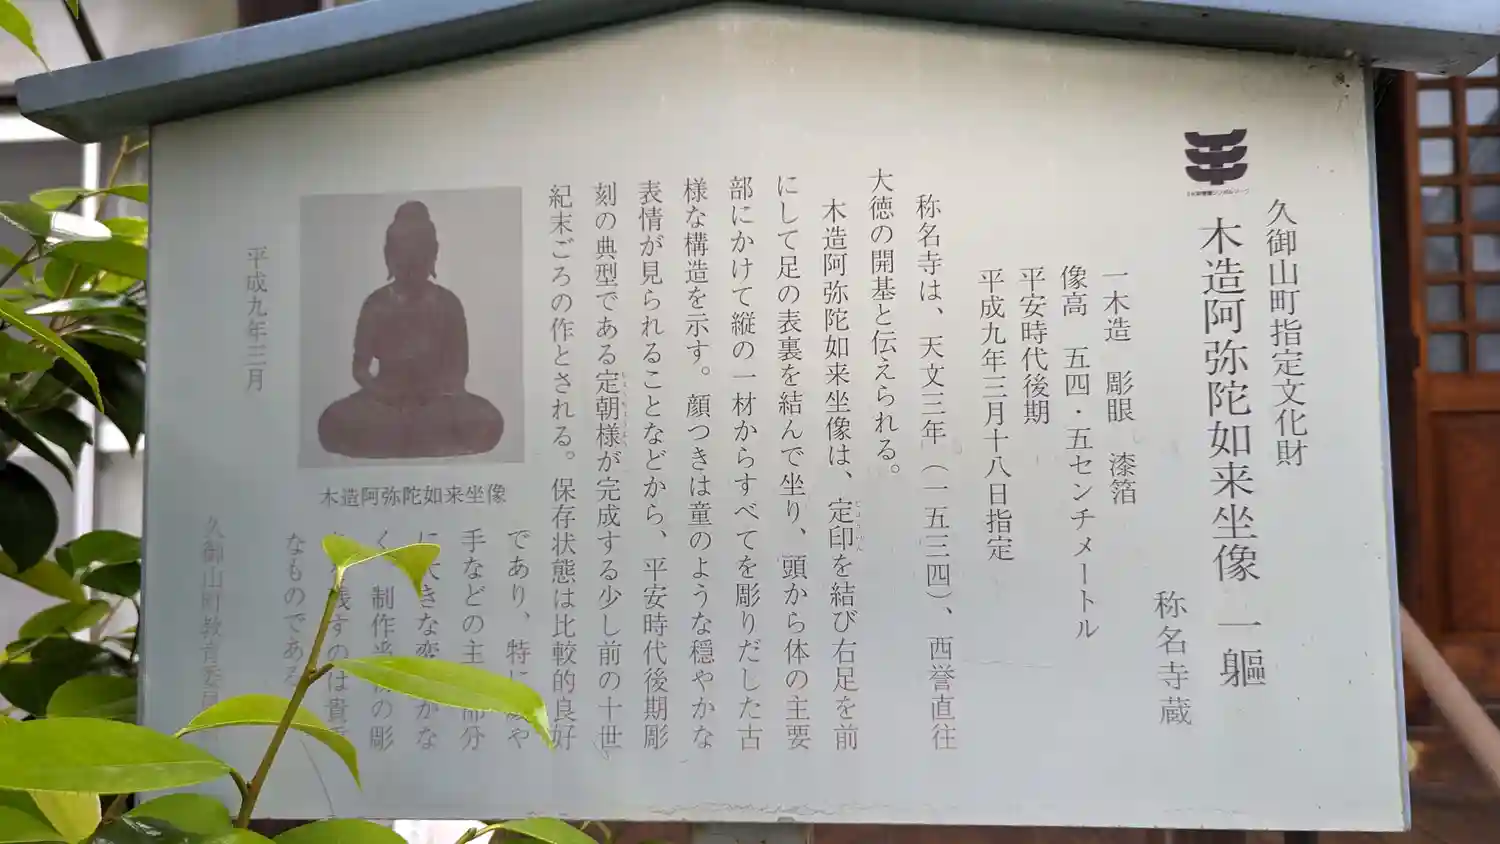 久御山町指定文化財
木造阿弥陀如来坐像 一軀
称名寺蔵
一木造 彫眼 漆箔
像高 五四・五センチメートル
平安時代後期
平成九年三月十八日指定
称名寺は、天文三年(一五三四)、西誉直往
大徳の開基と伝えられる。
木造阿弥陀如来坐像は、定印を結び右足を前
にして足の表裏を結んで坐り、頭から体の主要
部にかけて縦の一材からすべてを彫りだした古
様な構造を示す。顔つきは童のような穏やかな
表情が見られることなどから、平安時代後期彫
刻の典型である定朝様が完成する少し前の十世
紀末ごろの作とされる。保存状態は比較的良好
であり、特に や
手などの主 部分
に大きな変 がな
く、制作当 の彫
残すのは貴重
なものである
木造阿弥陀如来坐像
平成九年三月
久御山町教育委員